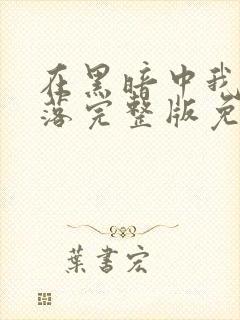 在黑暗中我
落完整版免
葉書宏